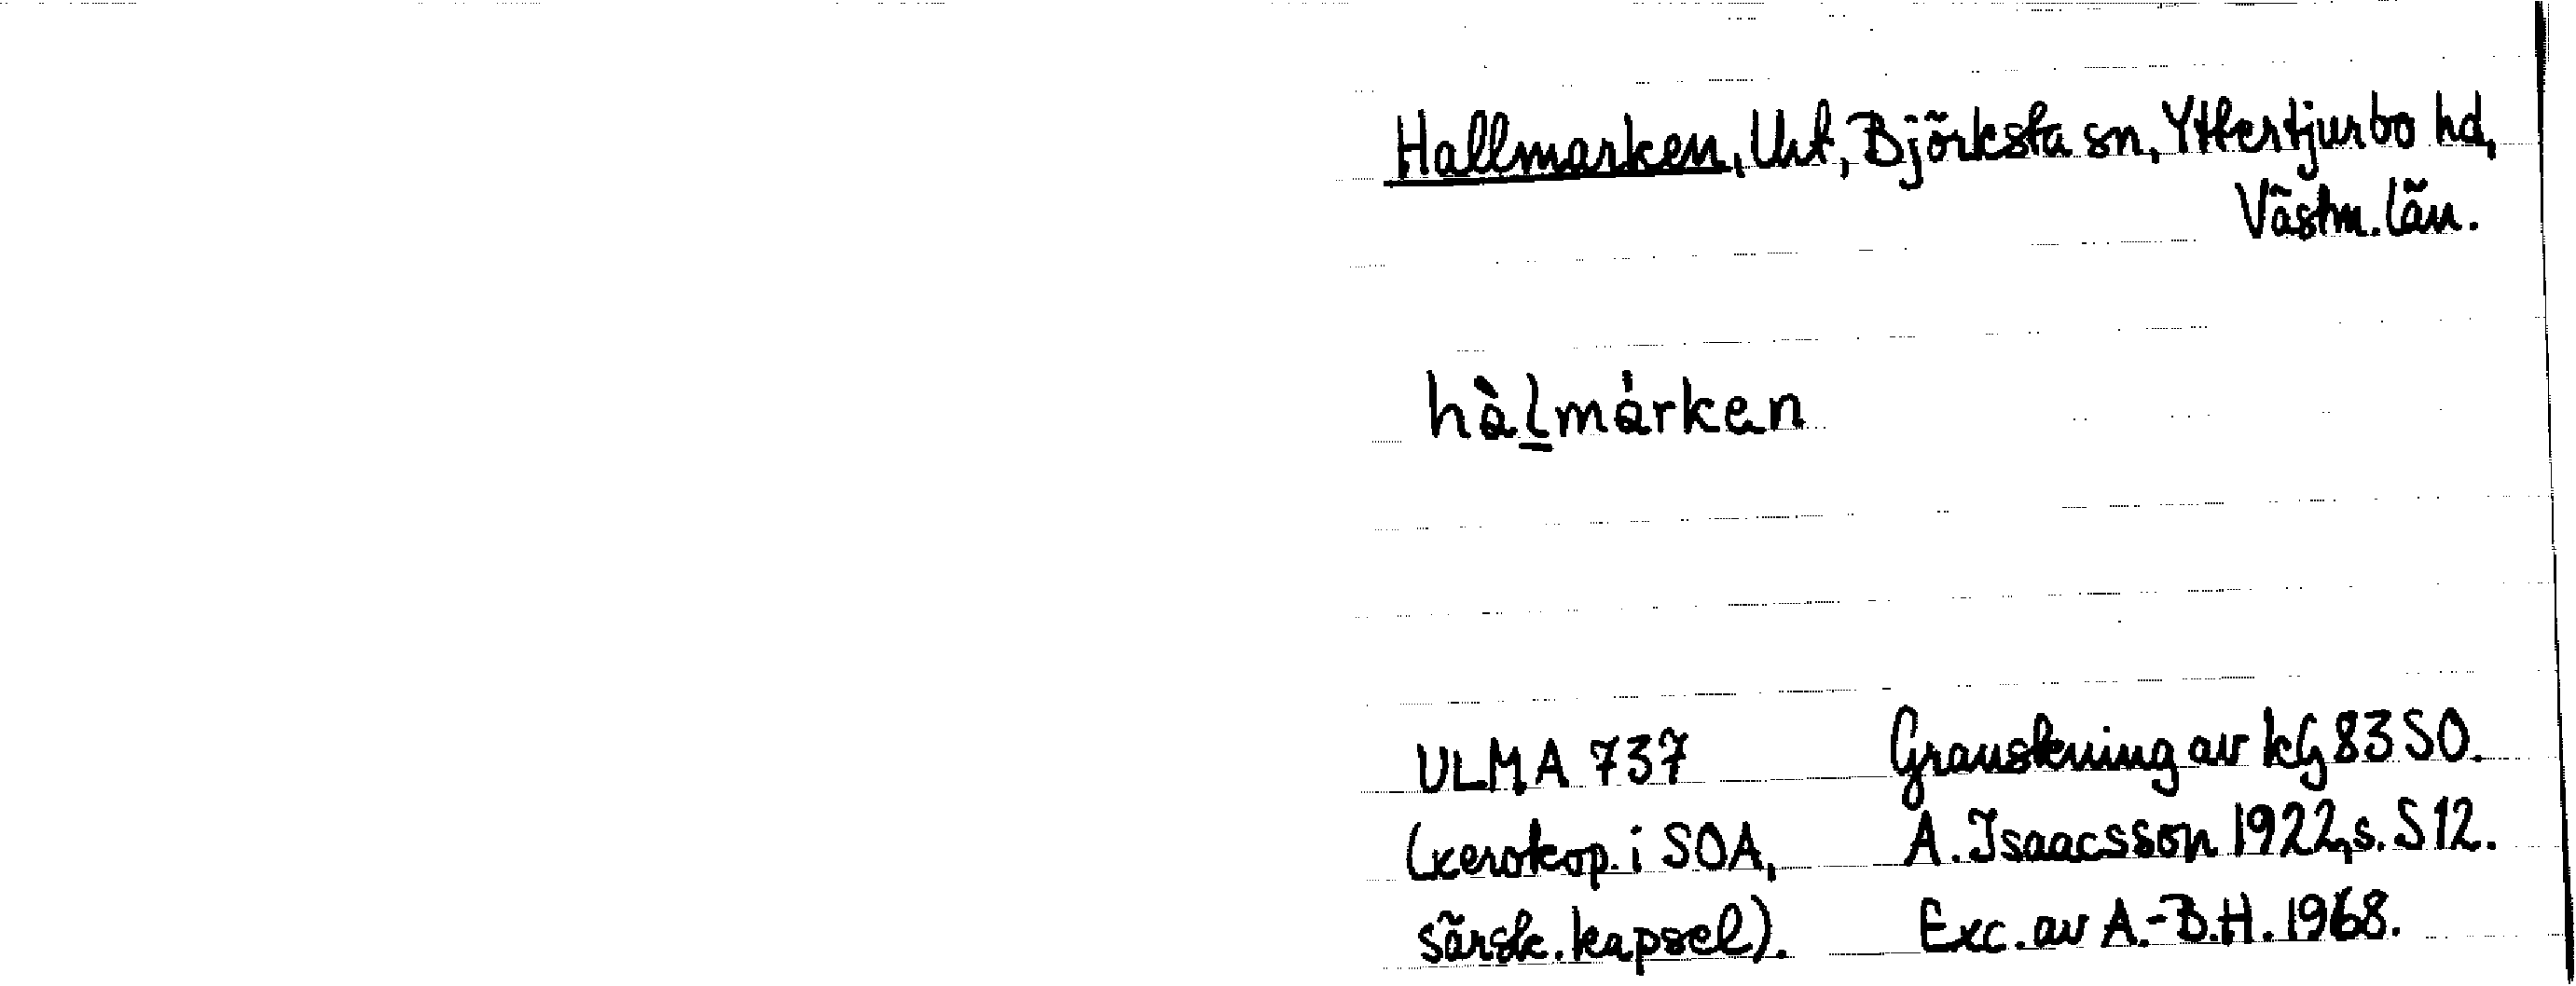 Hallmarken, Urt, Björksta sn, Yttertjurbo hd,
Västm. län.
hàlmárken
ULMA 737 Granskning av kG 83 SO.
(xerokop. i SOA, A. Isaacsson 1922, s. S 12.
särsk. kapsel). Exc. av A.-B.H. 1968.